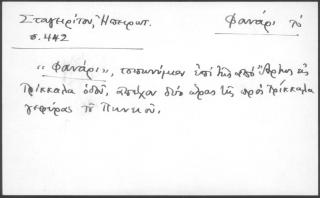 Σταγειρίτου, Ἠπειρωτ. Φανάρι τὸ
σ. 442
"Φανάρι", τοπωνύμιον ἐπὶ τῆς ἀπὸ Ἄρτης εἰς
Τρίκκαλα ὁδοῦ, ἀπέχον δύο ὥρας τῆς πρὸς Τρίκκαλα
γεφύρας τοῦ Πηνειοῦ.